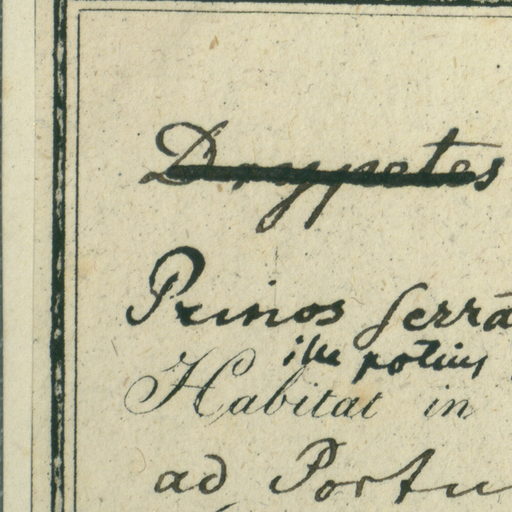 Drypetes
Prinos serra
potius
Habitat in
ad Portu